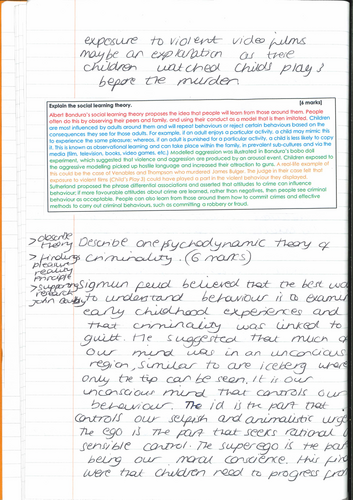 exposure to violent video films
maybe an explanation as these
children watched childs play 3
before the murder
Explain the social learning theory. [6 marks]
Albert Bandura's social learning theory proposes the idea that people will learn from those around them. People
often do this by observing their peers and family, and using their conduct as a model that is then imitated. Children
are most influenced by adults around them and will repeat behaviours or reject certain behaviours based on the
consequences they see for those adults. For example, if an adult enjoys a particular activity, a child may mimic this
to experience the same pleasure; whereas, if an adult is punished for a particular activity, a child is less likely to copy
it. This is known as observational learning and can take place within the family, in prevalent sub-cultures and via the
media (film, television, books, video games, etc.). Modelled aggression was illustrated in Bandura's bobo doll
experiment, which suggested that violence and aggression are produced by an arousal event. Children exposed to
the aggressive modelling picked up hostile language and increased their attraction to guns. A real life example of
this could be the case of Venables and Thompson who murdered James Bulger. The judge in their case felt that
exposure to violent film (Child's Play 3) could have played a part in the violent behaviour they displayed.
Sutherland proposed the phrase differential associates and asserted that attitudes to crime can influence
behaviour; if more favourable attitudes about crime are learned, rather than negatives, then people see criminal
behaviour as acceptable. People can also learn from those around them how to commit crimes and effective
methods to carry out criminal behaviours, such as committing a robbery or fraud.
> describe
theory
> findings
pleasure
reality
principle
> supporting
research
John Bowlby
Describe one psychodynamic theory of
criminality. (6 marks)
Sigmun feud believed that the best wa
to understand behaviour is to examin
early childhood experiences and
that criminality was linked to
guilt. He suggested that much o
our mind was in an unconcious
region, similar to are iceberg where
only the tip can be seen. It is our
unconscious mind that controls our
behaviour. The id is the part that
controls our selfish and animalistic urge
The ego is the part that seeks rational &
sensible control. The superego is the par
being our moral conscience. His fin
were that children need to progress fro